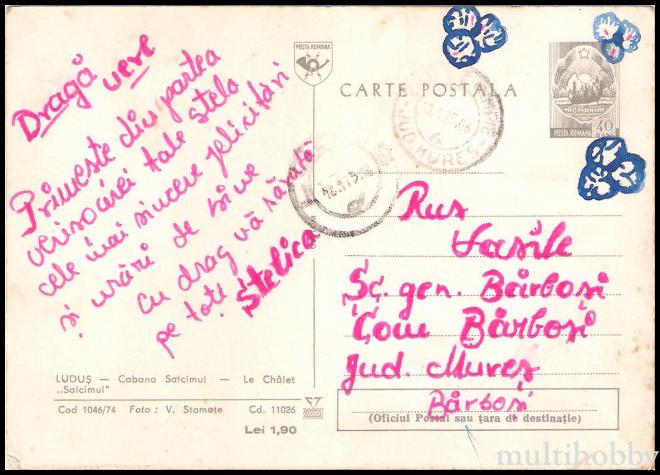 Dragă vere
Primește din partea
verișoarei tale Stela
cele mai sincere felicitări
și urări de bine
Cu drag vă sărută
pe toți Stelica
LUDUȘ — Cabana Salcimul — Le Châlet
„Salcimul”
Cod 1046/74 Foto : V. Stamate Cd. 11026
Lei 1,90
POSTA ROMANA
CARTE POSTALA
ROMANIA
POSTA ROMANA 40
JUD. MUREȘ
Rus
Vasile
Șc. gen. Bărboși
Com Bărboși
Jud. Mureș
Bărboși
(Oficiul Poștal sau țara de destinație)
multihobby